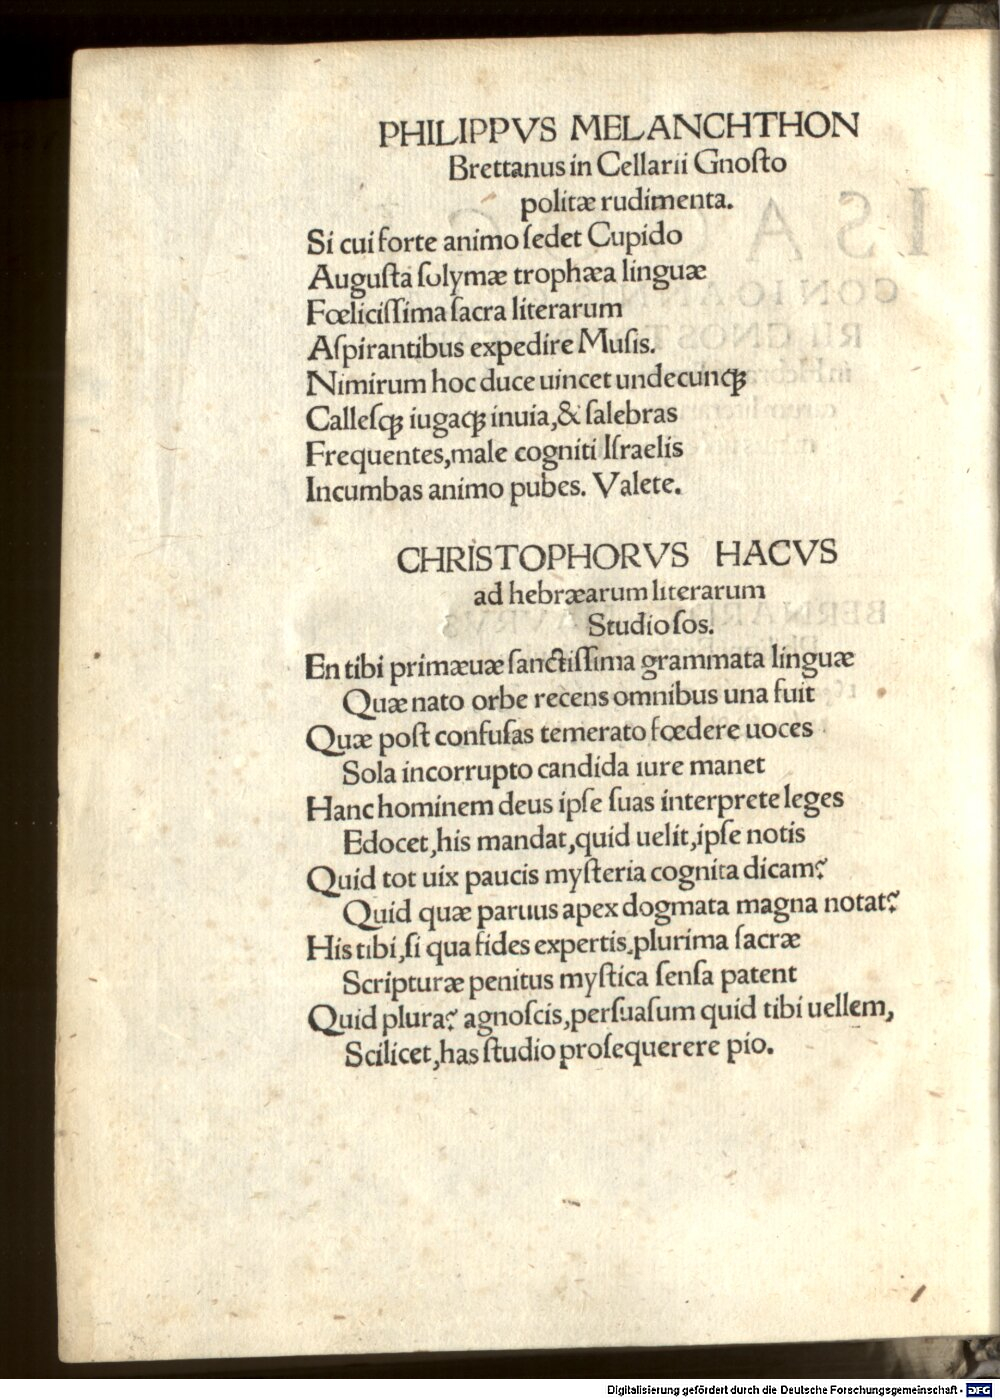 PHILIPPVS MELANCHTHON
Brettanus in Cellarii Gnoſto
politæ rudimenta.
Si cui forte animo ſedet Cupido
Auguſta ſolymæ trophæa linguæ
Fœliciſſima ſacra literarum
Aſpirantibus expedire Muſis.
Nimirum hoc duce uincet undecunqꝫ
Calleſqꝫ iugaqꝫ inuia,& ſalebras
Frequentes,male cogniti Iſraelis
Incumbas animo pubes. Valete.
CHRISTOPHORVS HACVS
ad hebræarum literarum
Studioſos.
En tibi primæuæ ſanctiſſima grammata linguæ
Quæ nato orbe recens omnibus una fuit
Quæ poſt confuſas temerato fœdere uoces
Sola incorrupto candida iure manet
Hanc hominem deus ipſe ſuas interprete leges
Edocet,his mandat,quid uelit,ipſe notis
Quid tot uix paucis myſteria cognita dicam?
Quid quæ paruus apex dogmata magna notat?
His tibi,ſi qua fides expertis,plurima ſacræ
Scripturæ penitus myſtica ſenſa patent
Quid plura? agnoſcis,perſuaſum quid tibi uellem,
Scilicet,has ſtudio proſequerere pio.
Digitalisierung gefördert durch die Deutsche Forschungsgemeinschaft - DFG